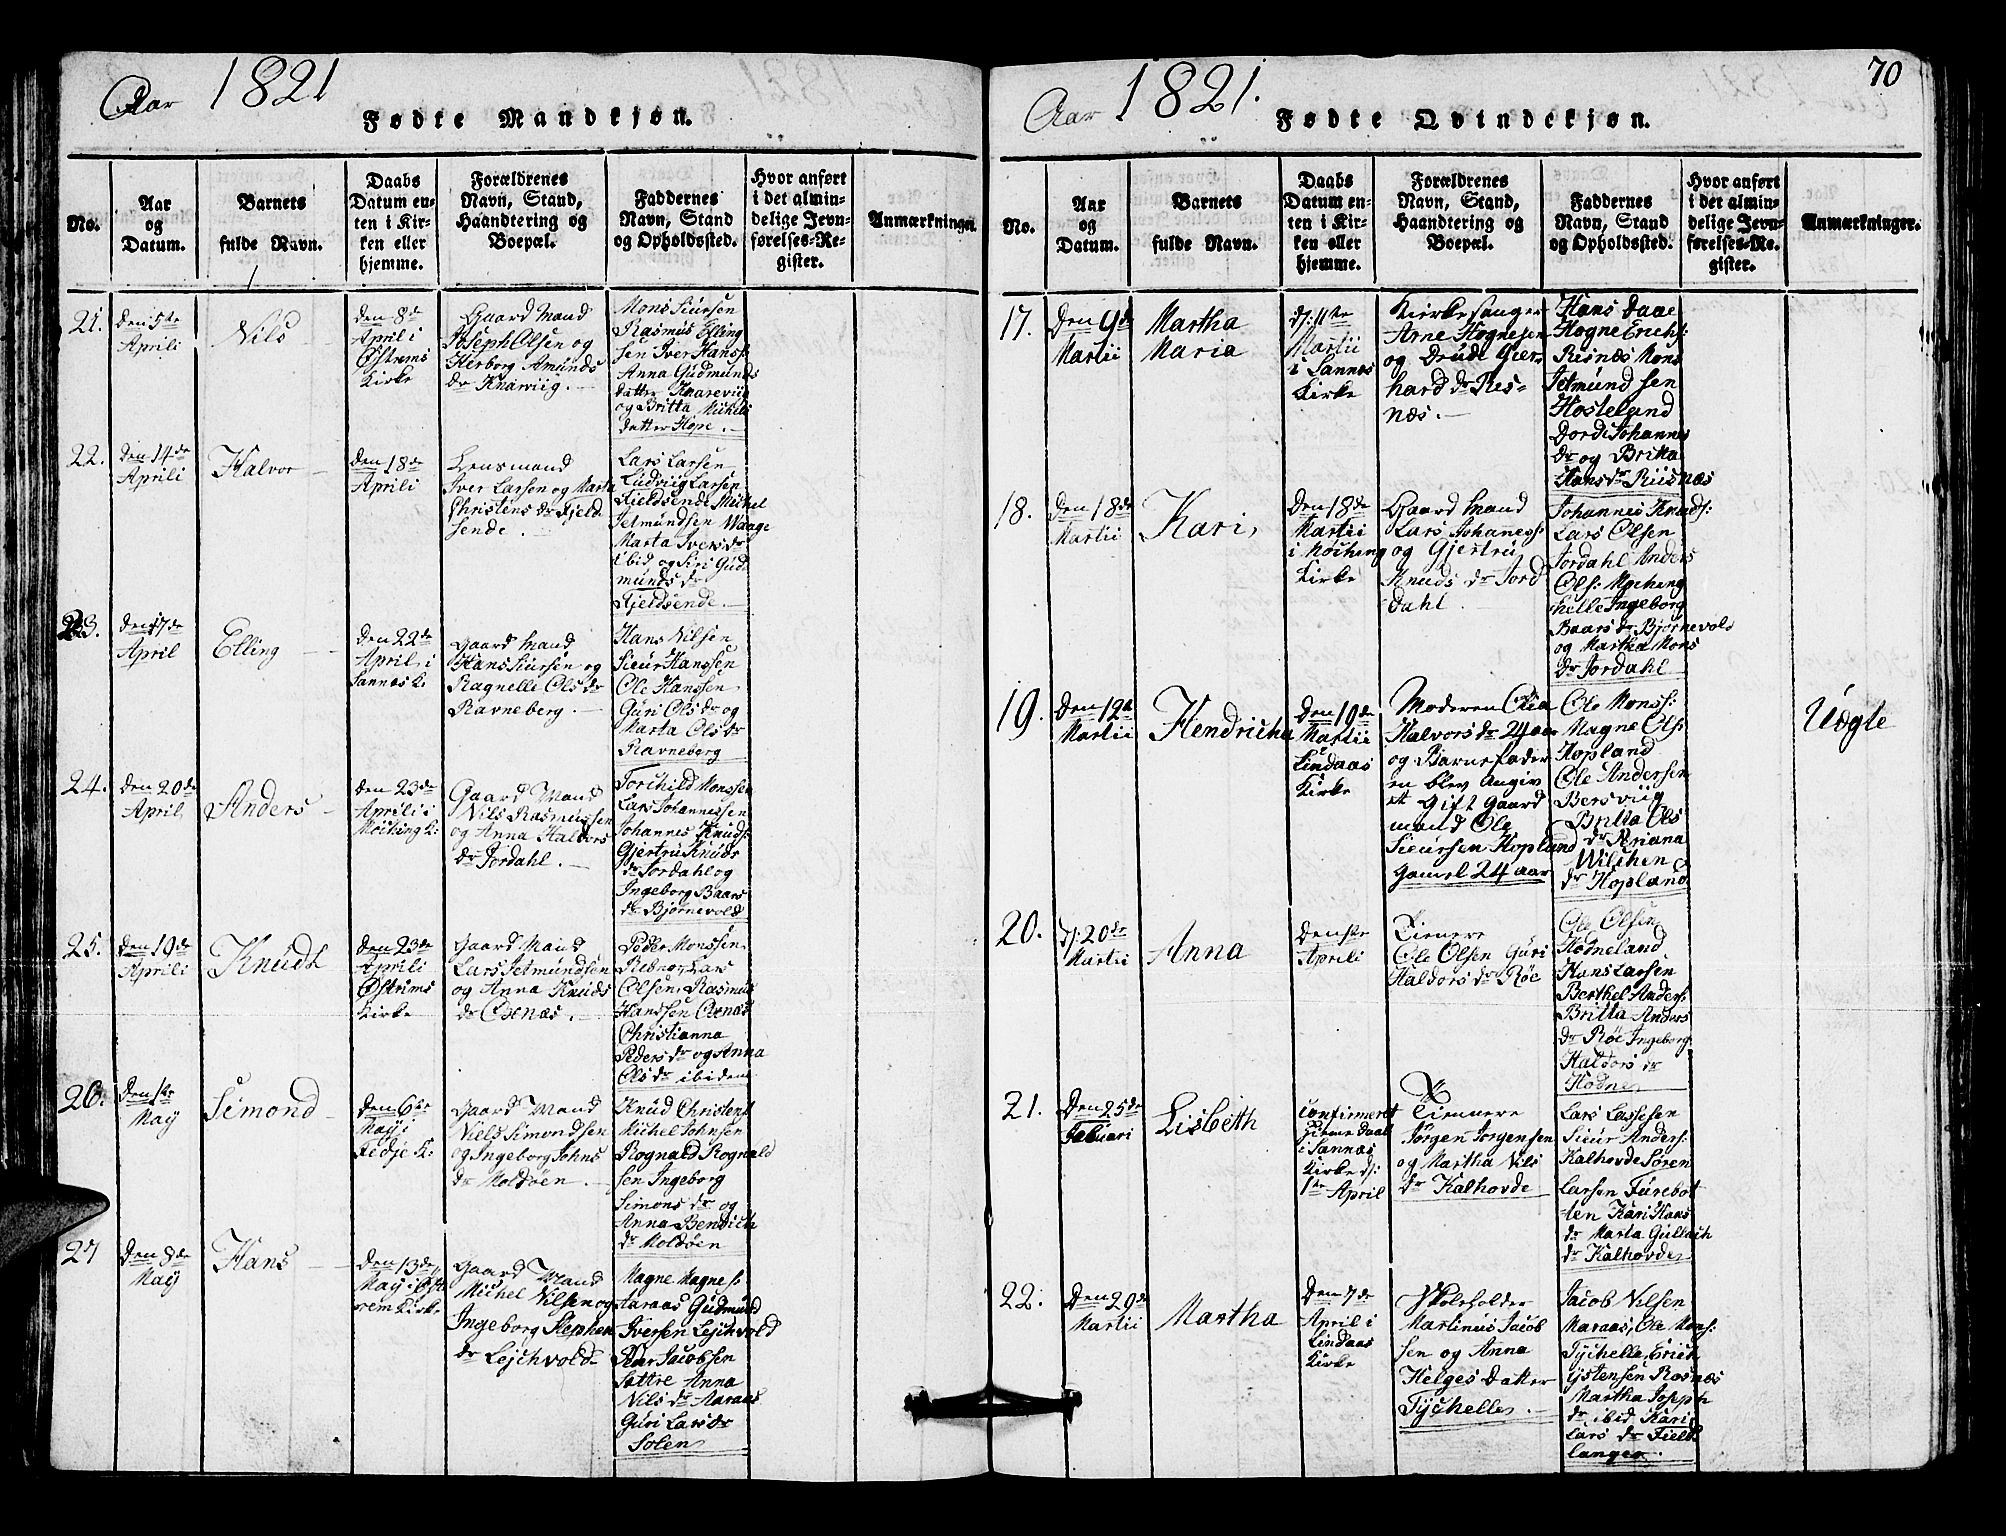 Aar 1821
Fødte Mandkjøn.
No.
Aar
og
Datum.
Barnets
fulde Navn.
Daabs
Datum en-
ten i Kir-
ken eller
hjemme.
Forældrenes
Navn, Stand,
Haandtering og
Boepæl.
Faddernes
Navn, Stand
og Opholdssted.
Hvor anført
i det almin-
delige Jevn-
førelses-Re-
gister.
Anmærkninger.
21.
Den 5te
Aprili
Nils
Den 8de
April i
Østrems
Kirke
Gaard Mand
Joseph Olsen og
Herborg Amunds
dr Knarviig.
Mons Siursen
Rasmus Elling
sen Iver Hanss:
Anna Gudmunds
datter Knareviig
og Britta Michels
datter Hope.
22.
Den 14de
Aprili
Halvor
Den 18de
Aprili
Lensmand
Iver Larsen og Marta
Christens dr Fjeld
sende.
Lars Larsen
Ludviig Larsen
Fjeldsende Michel
Jetmundsen Waage
Marta Ivers dr
ibid og Siri Gud
munds dr
Fjeldsende.
23.
Den 17de
April
Elling
Den 22de
April i
Sannes K:
Gaard Mand
Hans Siursen og
Ragnelle Ols dr
Ravneberg.
Hans Nilsen
Sieur Hanssen
Ole Hanssen
Guri Ols dr og
Marta Ols dr
Ravneberg
24.
Den 20de
April
Anders
Den 23de
Aprili i
Møcking K:
Gaard Mand
Nils Rasmussen
og Anna Haldors
dr Jordahl.
Torchild Monssen
Lars Johannessen
Johannes Knuds:
Gjertru Knuds
dr Jordahl og
Ingeborg Baars
dr Bjørnevold
25.
Den 19de
Aprili
Knudt
Den 23de
Aprili
Østrems
Kirke
Gaard Mand
Lars Jetmundsen
og Anna Knuds
dr Oxnæs.
Peder Monssen
Rebnor, Lars
Olsen, Rasmus
Hanssen Oxnæs
Christianna
Peders dr og Anna
Ols dr ibidem
26.
Den 1te
May
Simond
Den 6te
May i
Fedje K:
Gaard Mand
Niels Simondsen
og Ingeborg Johns
dr Moldøen.
Knud Christens:
Michel Johnsen
Rognald Rognald
sen Ingeborg
Simons dr og
Anna Bendich
dr Moldøen
27
Den 8de
May
Hans
Den 13de
May i Øst
rem Kirke
Gaard Mand
Michel Nilsen og
Ingeborg Stephen
dr Lejchvold
Magne Magnes:
Aaraas Gudmund
Iversen Lejchvold
Peder Jacobsen
Sættre Anna
Nils dr Aaraas
Guri Lars dr
Solen
70
Aar 1821.
Fødte Qvindekjøn.
No.
Aar
og
Datum.
Barnets
fulde Navn.
Daabs
Datum en-
ten i Kir-
ken eller
hjemme.
Forældrenes
Navn, Stand,
Haandtering og
Boepæl.
Faddernes
Navn, Stand
og Opholdssted.
Hvor anført
i det almin-
delige Jevn-
førelses-Re-
gister.
Anmærkninger.
17.
Den 9de
Martii
Martha
Maria
d: 11te
Martii
i Sannes
Kirke
Kirkesanger
Arne Hognesen
og Drude Gier
hard dr Ris-
næs.
Hans Daae
Hogne Erichs:
Risnæs Mons
Jetmund sen
Hosteland
Dordi Johannes
dr og Britta
Hans dr Riisnæs
18.
Den 18de
Martii
Kari
Den 18de
Martii
i Møcking
Kirke
Gaard Mand
Lars Johaness:
og Gjertru
Knuds dr Jord
dahl
Johannes Knuds:
Lars Olsen
Jordahl Anders
Ols: Mocheng
helle Ingeborg
Baars dr Bjørnevold
og Martha Mons
dr Jordahl
19.
Den 12te
Martii
Hendricha
Den 19de
Martii
i
Lindaas
Kirke
Moderen Olia
Halvors dr 24 aar
og Barnefader
en blev angiv
et Gift Gaard
mand Ole
Sieursen Hopland
gamel 24 aar
Ole Monss:
Magne Ols:
Hopland
Ole Andersen
Bersviig
Britta Ols
dr Ariana
Wilchen
dr Hopland
Uægte
20.
d: 20de
Martii
Anna
Den 1te
Aprili
Tienere
Ole Olsen Guri
Haldors dr Røe
Ole Olsen
Hodneland
Hans Larsen
Berthel Anders:
Britta Anders
dr Røe Ingeborg
Haldors dr
Hodne
21.
Den 25de
Febuari
Lisbeth
Confirmeret
Hieme daab
i Sannæs
Kirke d:
1te April
Tiennere
Jørgen Jørgensen
og Martha Nils
dr Kalhovde
Lars Lassesen
Sieur Anders:
Kalhovde Søren
Larsen Furebot
ten Kari Hans
dr Marta Gullach
dr Kalhovde
22.
Den 29de
Martii
Martha
Den 7de
April i
Lindaas
Kirke
Skoleholder
Martinus Jacob
sen og Anna
Helges datter
Tychelle.
Jacob Nilsen
Maraas, Ole Mons:
Tychelle, Erich
Estensen Rosnæs
Martha Joseph
dr ibid Kari
Lars dr Field
langer.